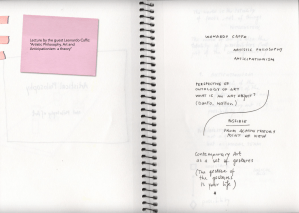 Lecture by the guest Leonardo Caffo
"Artistic Philosophy, Art and
Anticipationism: a theory"
LEONARDO CAFFO
ARTISTIC PHILOSOPHY
ANTICIPATIONISM
PERSPECTIVE OF
ONTOLOGY OF ART
WHAT IS AN ART OBJECT?
(DANTO,
BESIDE
FROM
POINT OF VIEW
CONTEMPORARY ART
AS A SET OF GESTURES
(THE PROBLEM OF
THE GESTURES
IS YOUR LIFE)